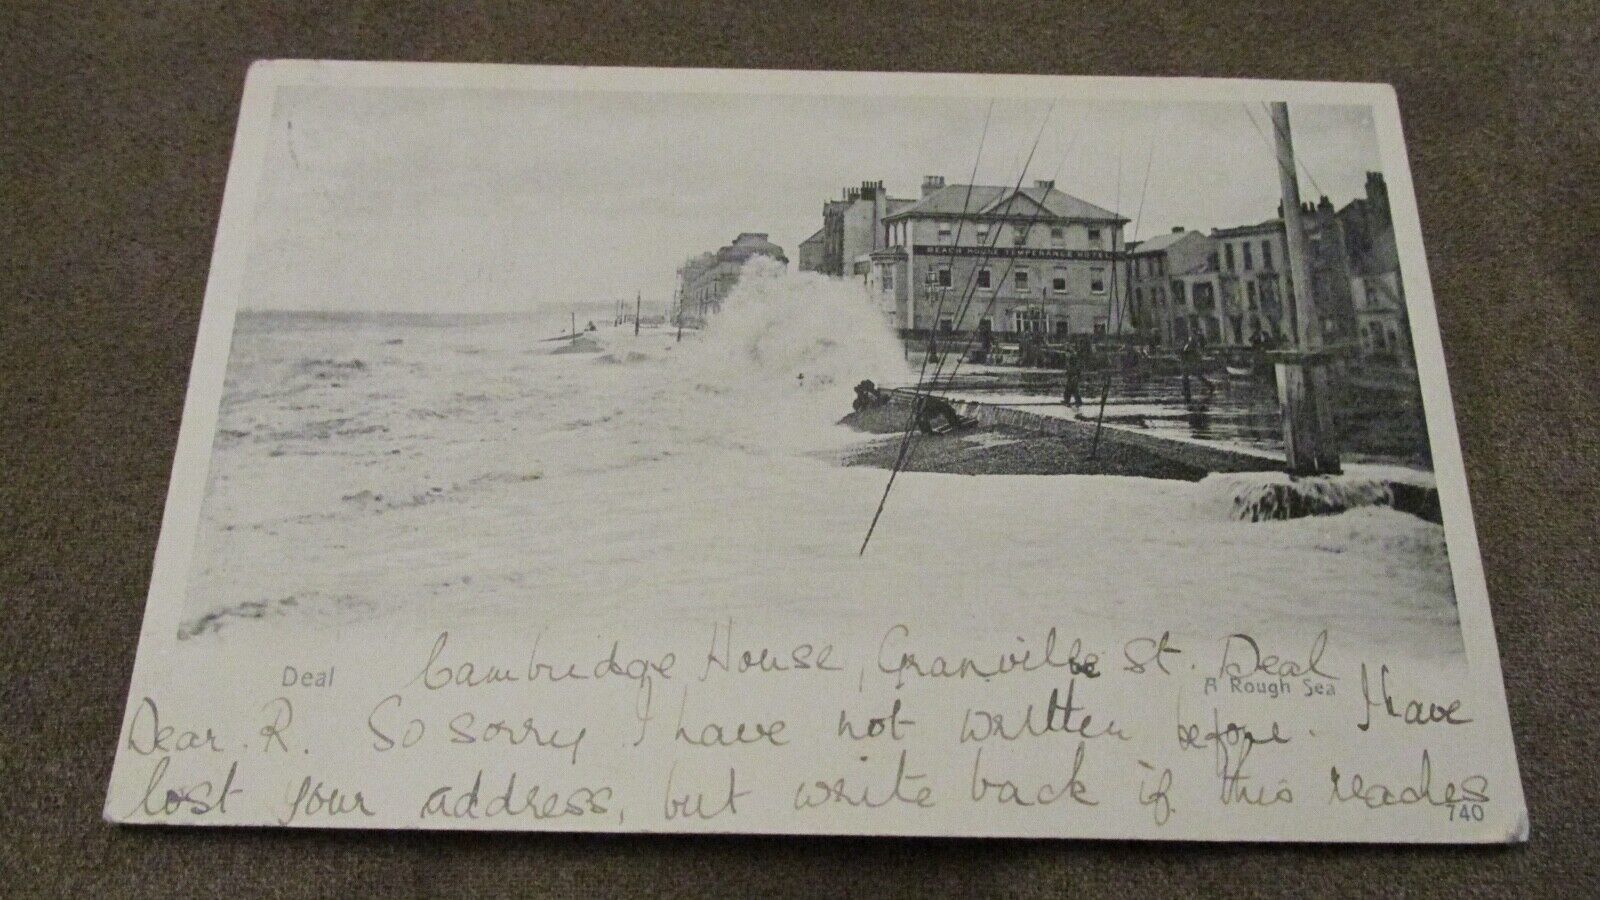 BEACH HOUSE TEMPERANCE HOTEL
Cambridge House, Granville St. Deal
Deal
A Rough Sea
Dear R. So sorry I have not written before. I have
lost your address, but write back if this reaches
740